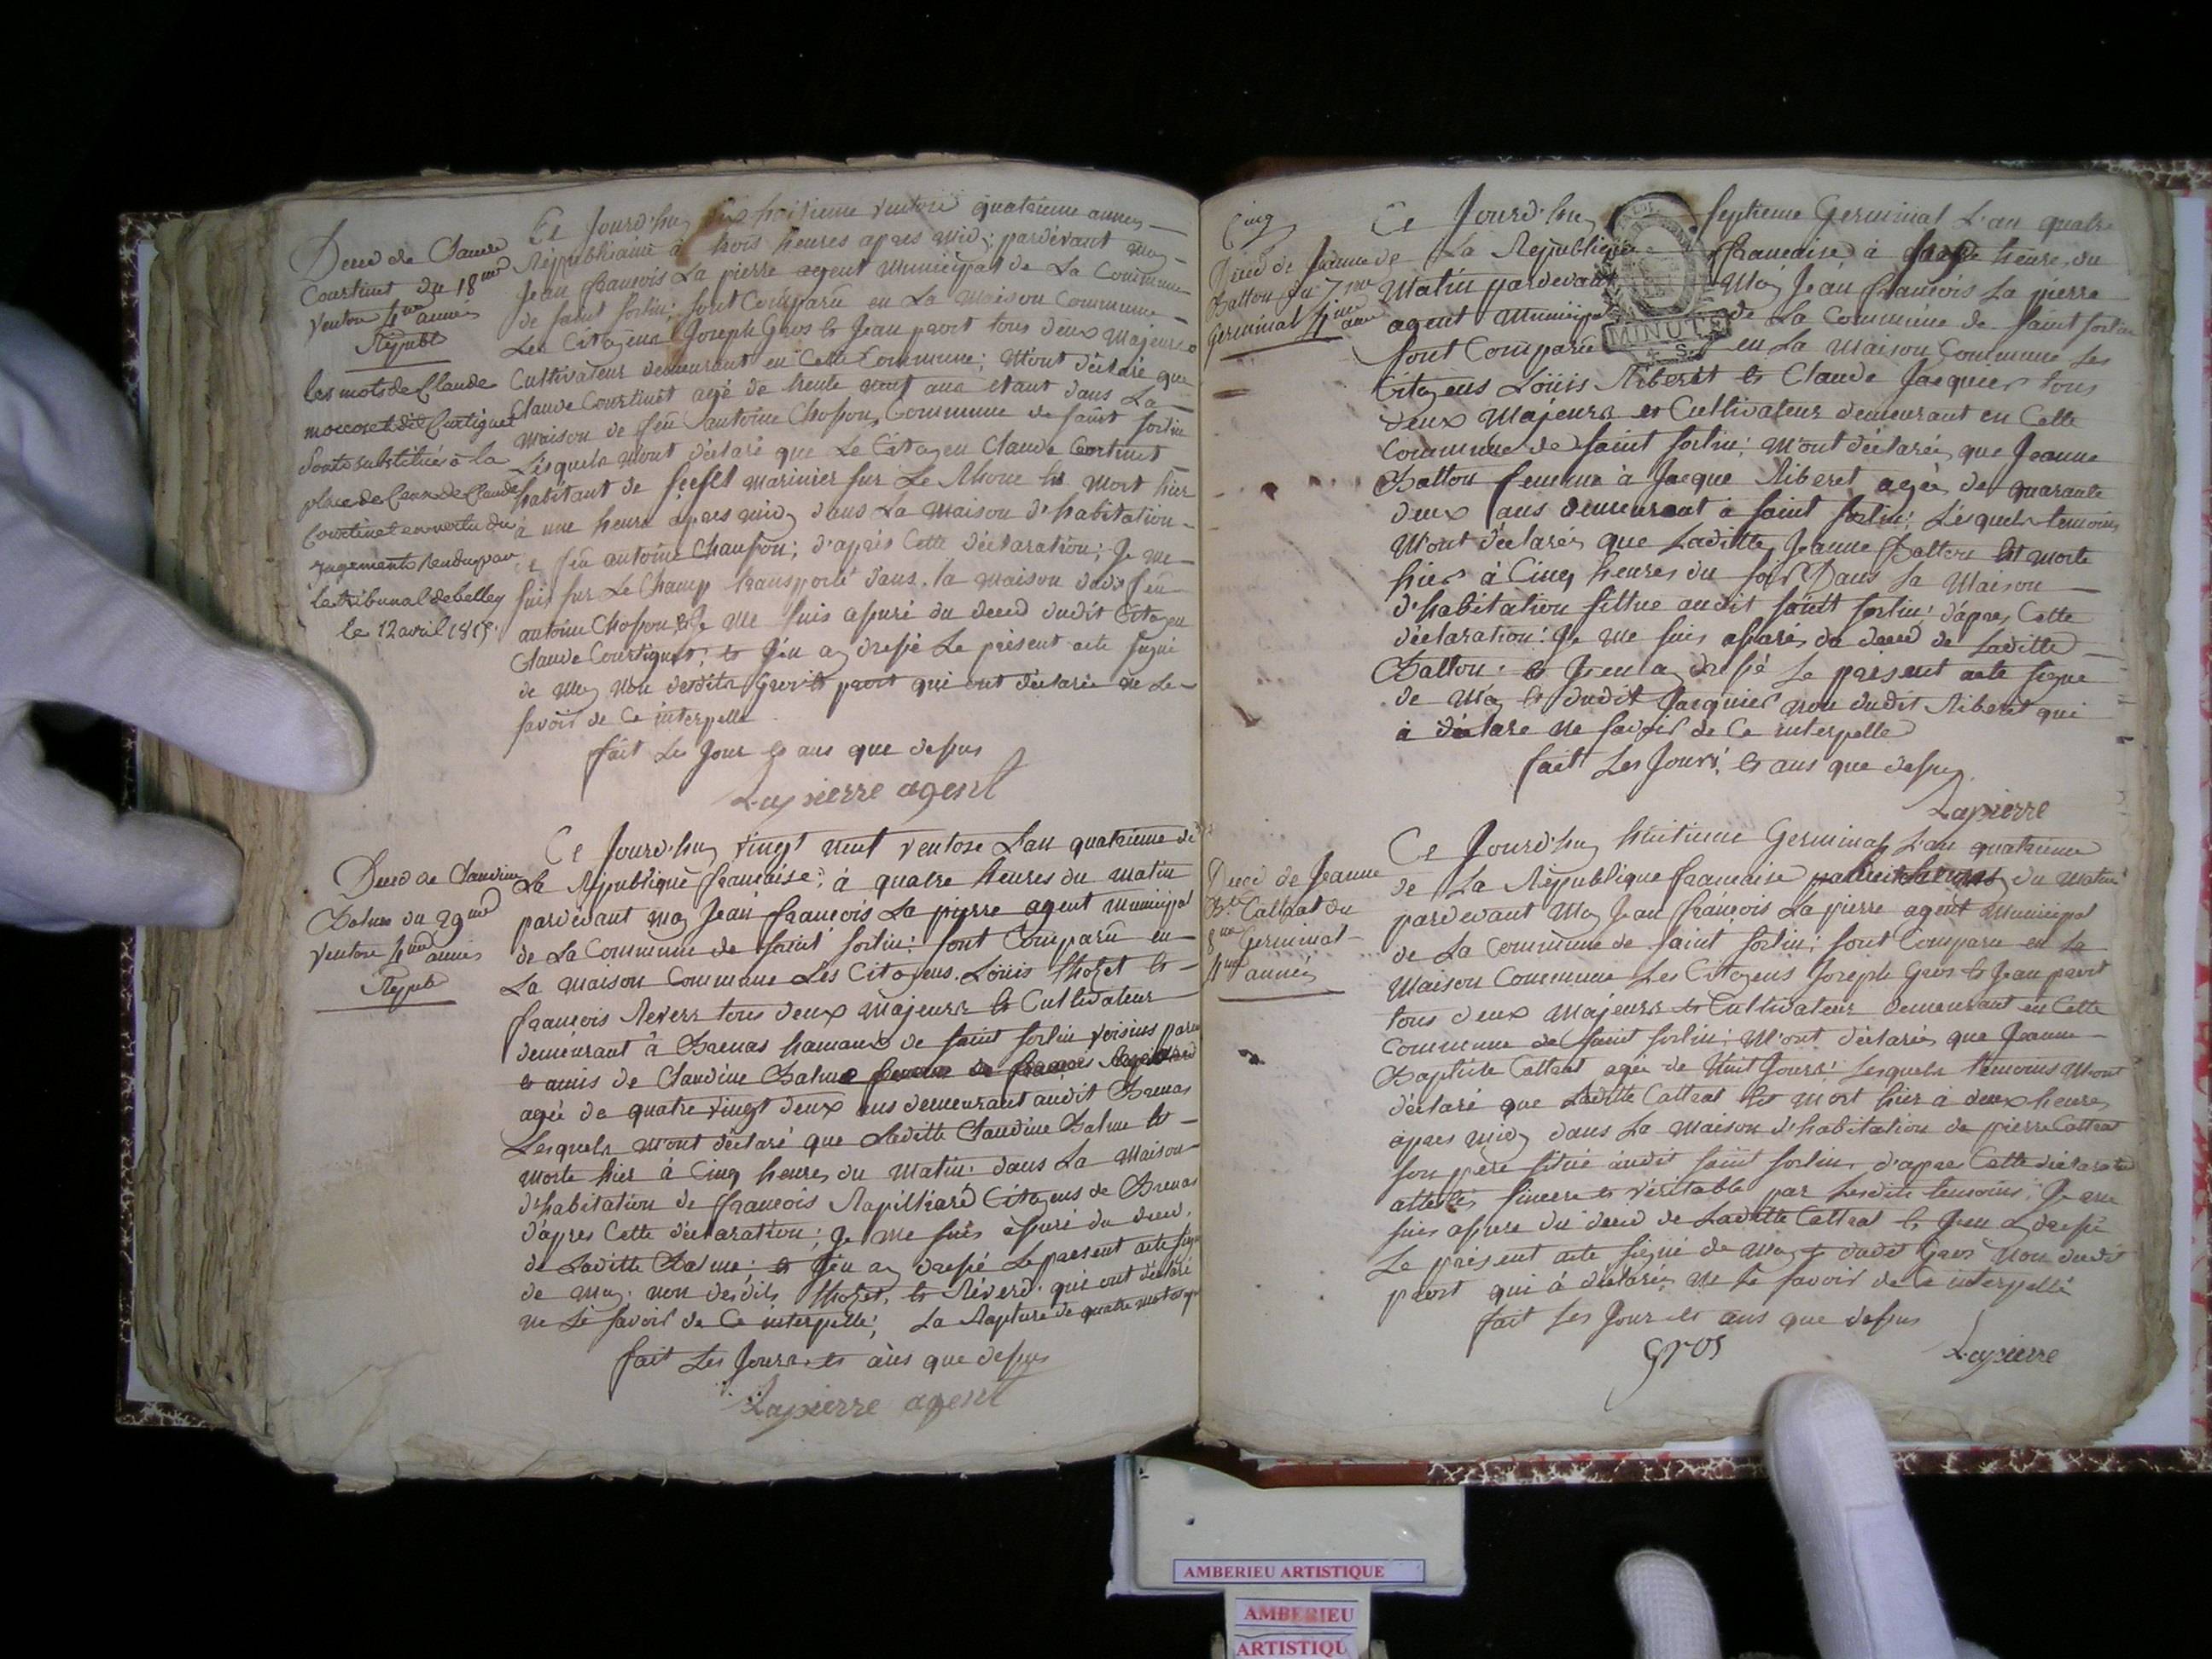 Deced de Claude
Courtinet du 18me
Ventose 4me année
Republ
les mots de Claude
moccozet dit Curtignet
Sont substitués à la
place de Ceux de Claude
Courtinet en vertu du
jugement Rendu par
le tribunal de belley
le 12 avril 1815
Ce Jourd'huy dix huitieme ventose quatrieme année
Republicaine à trois heures apres midy; pardevant moy
Jean françois La pierre agent Municipal de La Commune
de saint sorlin; sont Comparu en La Maison Commune
Les Citoyens Joseph Gros et Jean pavit tous deux Majeurs
Cultivateur demeurant en Cette Commune; M'ont déclaré que
Claude Courtinet agé de trente neuf ans etant dans La
Maison de feu antoine Choson, Commune de saint sorlin
Lesquels m'ont déclaré que Le Citoyen Claude Cortinet
habitant de marinier sur Le Rhone est Mort hier
à une heure apres midy dans La Maison d'habitation
de feu antoine Chauson; d'après Cette déclaration; Je me
suis sur Le Champ transporté dans la maison dudit feu
antoine Choson, et Je Me suis assuré du deced dudit Citoyen
Claude Courtignet; et J'en ay dressé Le présent acte signé
de Moy Non desdits Gros et pavit qui ont déclaré ne Le
savoir de Ce interpellé
fait Les Jour et ans que dessus
Lapierre agent
Deced de Claudine
Balme du 29me
Ventose 4me année
Republ
Ce Jourd'huy vingt neuf ventose L'an quatrieme de
La République française; à quatre heures du matin
pardevant moy Jean françois La pierre agent Municipal
de La Commune de saint sorlin; sont Comparu en
La maison Commune Les Citoyens Louis et
françois Revers tous deux Majeurs et Cultivateur
demeurant à Brenas hamaud de saint sorlin voisins parens
et amis de Claudine Balme femme de françois Rapilliard
agée de quatre vingt deux ans demeurant audit Brenas
Lesquels m'ont déclaré que Ladite Claudine Balme est
Morte hier à Cinq heures du Matin; dans La Maison
d'habitation de françois Rapilliard Citoyens de Brenas
d'apres Cette déclaration; Je Me suis assuré du deced
de Ladite Balme; et J'en ay dressé Le present acte signé
de moy; non desdits et Réverd qui ont déclaré
ne Le savoir de Ce interpellé; La Rapture de quatre mots
fait Les Jours et ans que dessus
Lapierre agent
Cinq
Deced de Jeanne
Batton du 7me
Germinal 4me année
Ce Jourd'huy septieme Germinal L'an quatre
de La République francaise à heure du
Matin pardevant Moy Jean françois La pierre
agent Municipal de La Commune de saint sorlin
MINUTE
sont Comparu en La Maison Commune Les
Citoyens Louis Riberet et Claude Jacquier tous
deux Majeurs et Cultivateur demeurant en Cette
Commune de saint sorlin; M'ont déclarés que Jeanne
Batton femme à Jacque Riberet agée de quarante
deux ans demeurant à saint sorlin; Lesquels temoins
M'ont déclarés que Laditte Jeanne Batton est morte
hier à Cinq heures du soir Dans La Maison
d'habitation sittue audit saint sorlin; d'apres Cette
déclaration; Je me suis assurés du deced de Laditte
Batton; et J'en ay dressé Le présent acte signe
de Moy et dudit Jacquier non dudit Riberet qui
à déclare ne savoir de Ce interpellé
fait Les Jours et ans que dessus
Lapierre
Deced de Jeanne
Bte Cattrat du
8me Germinal
4me année
Ce Jourd'huy huitieme Germinal L'an quatrieme
de La République francaise du Matin
pardevant Moy Jean françois La pierre agent Municipal
de La Commune de saint sorlin; sont Comparu en La
Maison Commune Les Citoyens Joseph Gros et Jean pavit
tous deux Majeurs et Cultivateur demeurant en Cette
Commune de saint sorlin; M'ont déclarés que Jeanne
Baptiste Cattrat agée de Huit Jours; Lesquels temoins M'ont
déclaré que Laditte Cattrat est Mort hier à deux heures
apres midy dans La Maison d'habitation de pierre Cattrat
son pere située audit saint sorlin, d'apres Cette déclaration
attestés sincere et véritable par Lesdits temoins; Je me
suis assure du deced de Laditte Cattrat et J'en ay dressé
Le présent acte signé de Moy et dudit Gros Non dudit
pavit qui à déclarés ne Le savoir de Ce interpellé
fait Les Jour et ans que dessus
Gros Lapierre
AMBERIEU ARTISTIQUE
AMBERIEU
ARTISTIQU